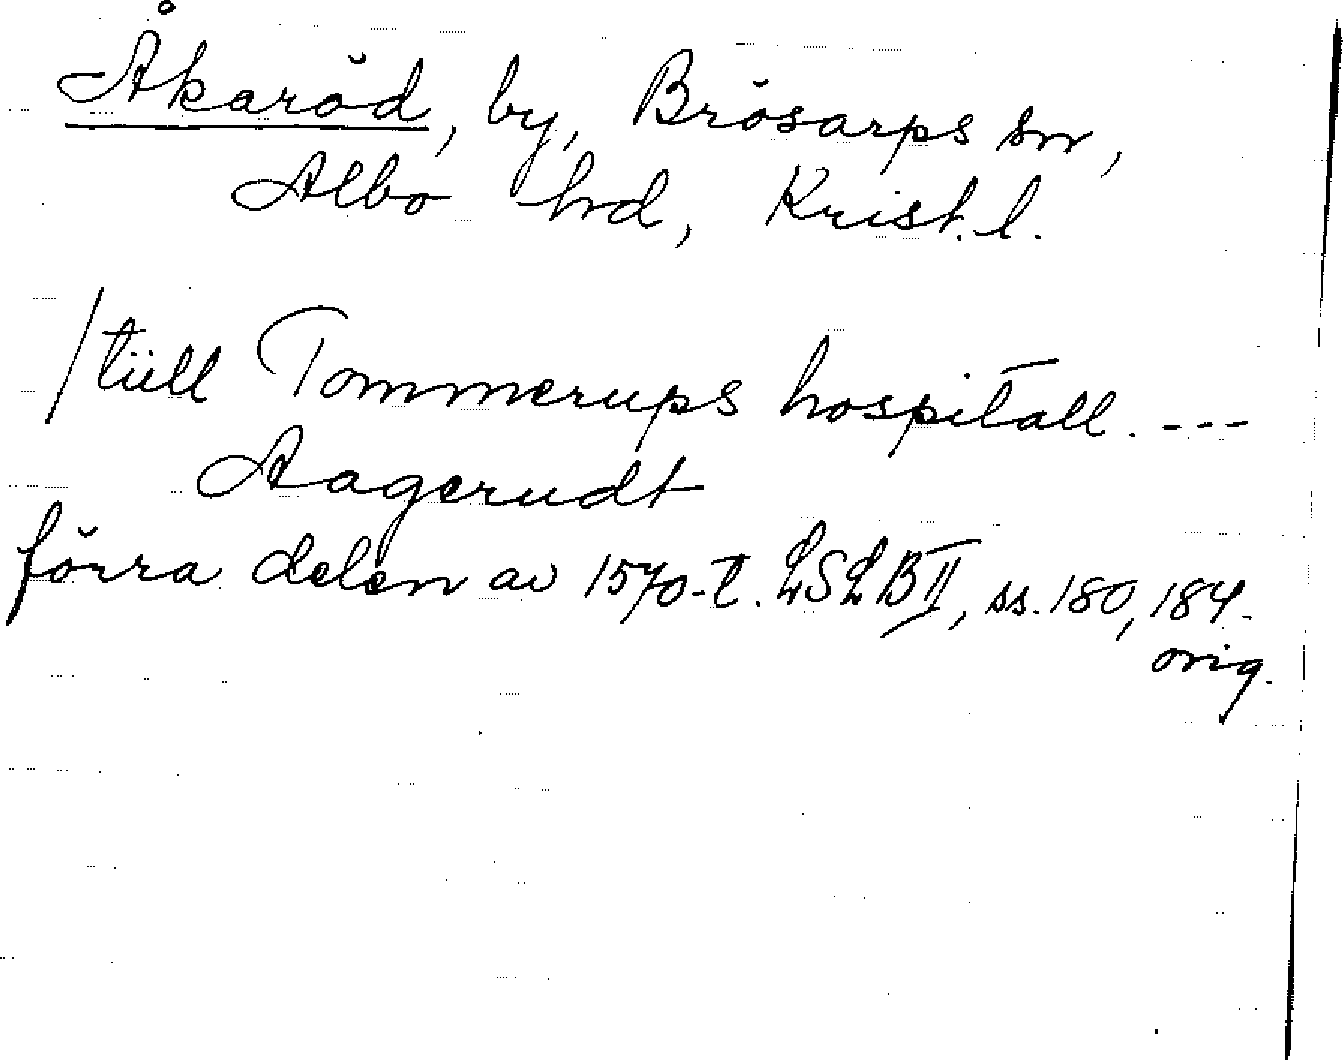 Åkaröd, by, Brösarps sn,
Albo hd, Krist. l.
/tüll Tommerups hospitall. ---
Aagerudt
förra delen av 1570-t. LSLB II, ss. 180, 184.
orig.